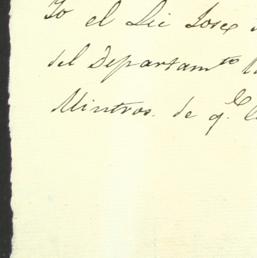 Yo el Lic Jose
del Departamto
Mintros. de q.e